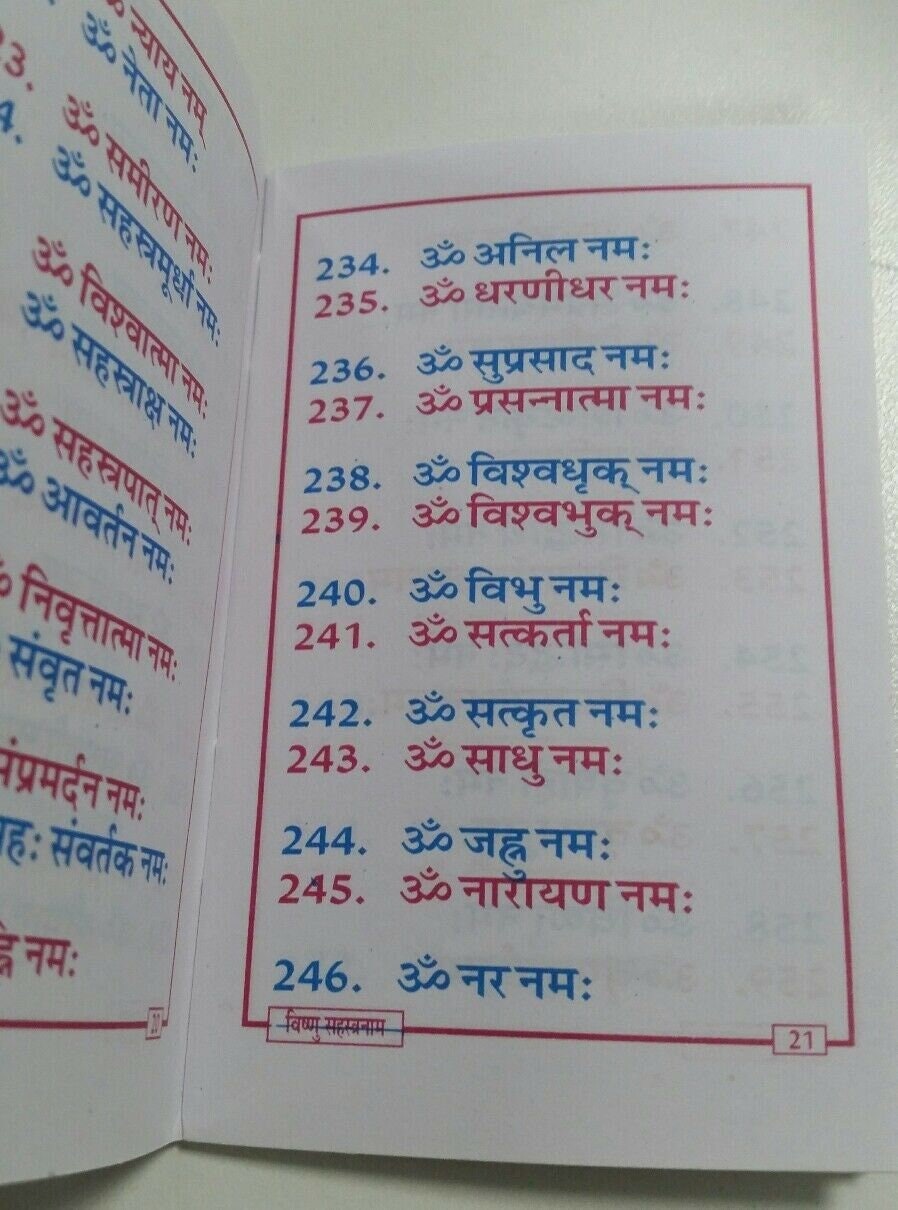 न्याय नम्
ॐ नेता नमः
ॐ समीरण नमः
ॐ सहस्त्रमूर्धा नमः
ॐ विश्वात्मा नमः
ॐ सहस्त्राक्ष नमः
ॐ सहस्त्रपात् नमः
ॐ आवर्तन नमः
ॐ निवृत्तात्मा नमः
संवृत नमः
संप्रमर्दन नमः
संवर्तक नमः
नमः
20
234. ॐ अनिल नमः
235. ॐ धरणीधर नमः
236. ॐ सुप्रसाद नमः
237. ॐ प्रसन्नात्मा नमः
238. ॐ विश्वधृक् नमः
239. ॐ विश्वभुक् नमः
240. ॐ विभु नमः
241. ॐ सत्कर्ता नमः
242. ॐ सत्कृत नमः
243. ॐ साधु नमः
244. ॐ जह्नु नमः
245. ॐ नारायण नमः
246. ॐ नर नमः
विष्णु सहस्त्रनाम
21